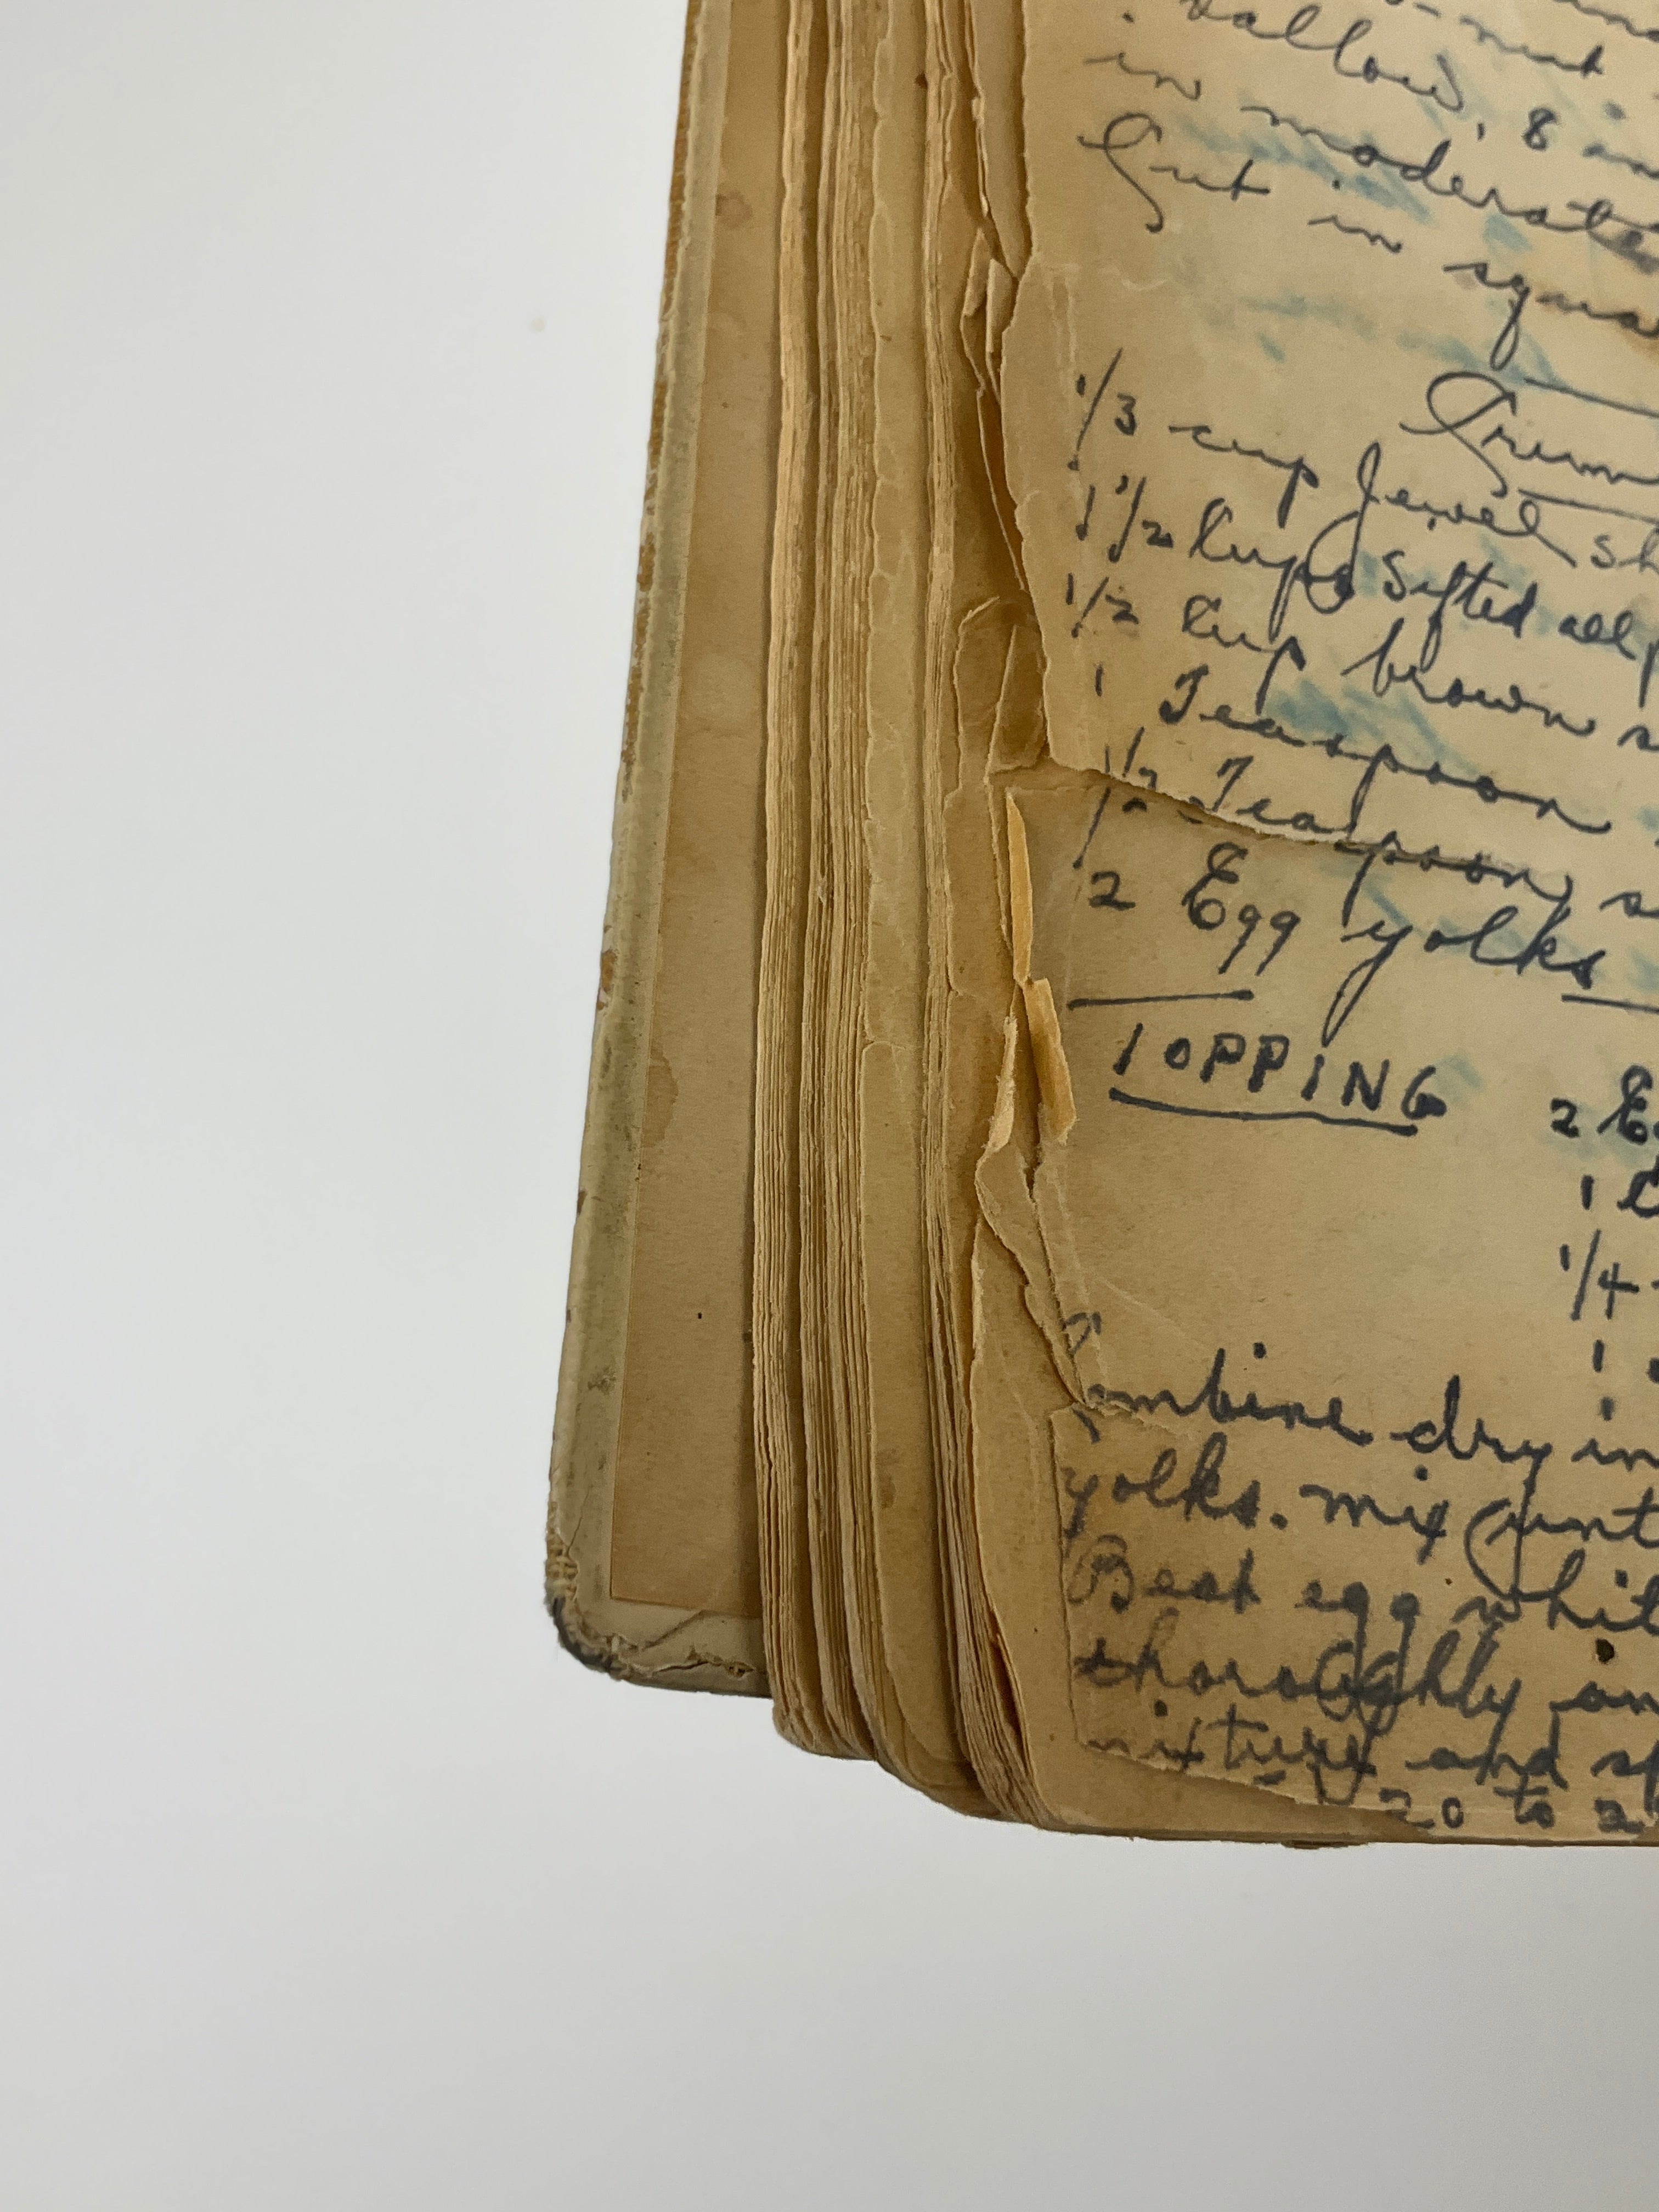 in moderate
Cut in squa
Crum
1/3 cup Jewel sh
1 1/2 Cups Sifted all p
1/2 Cup brown s
1 Teaspoon
1/2 Teaspoon s
2 Egg yolks
TOPPING 2 E
1 C
1/4
1
Combine dry in
yolks. mix (unt
Beat egg whit
thoroughly an
mixture and sp
20 to 2